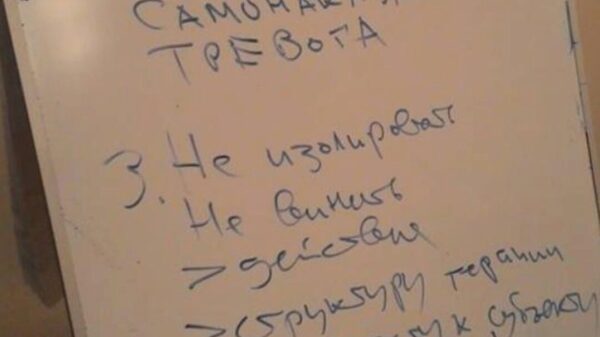 ТРЕВОГА
3. Не изолировать
Не винить
> действия
> структуру терапии
к субъекту